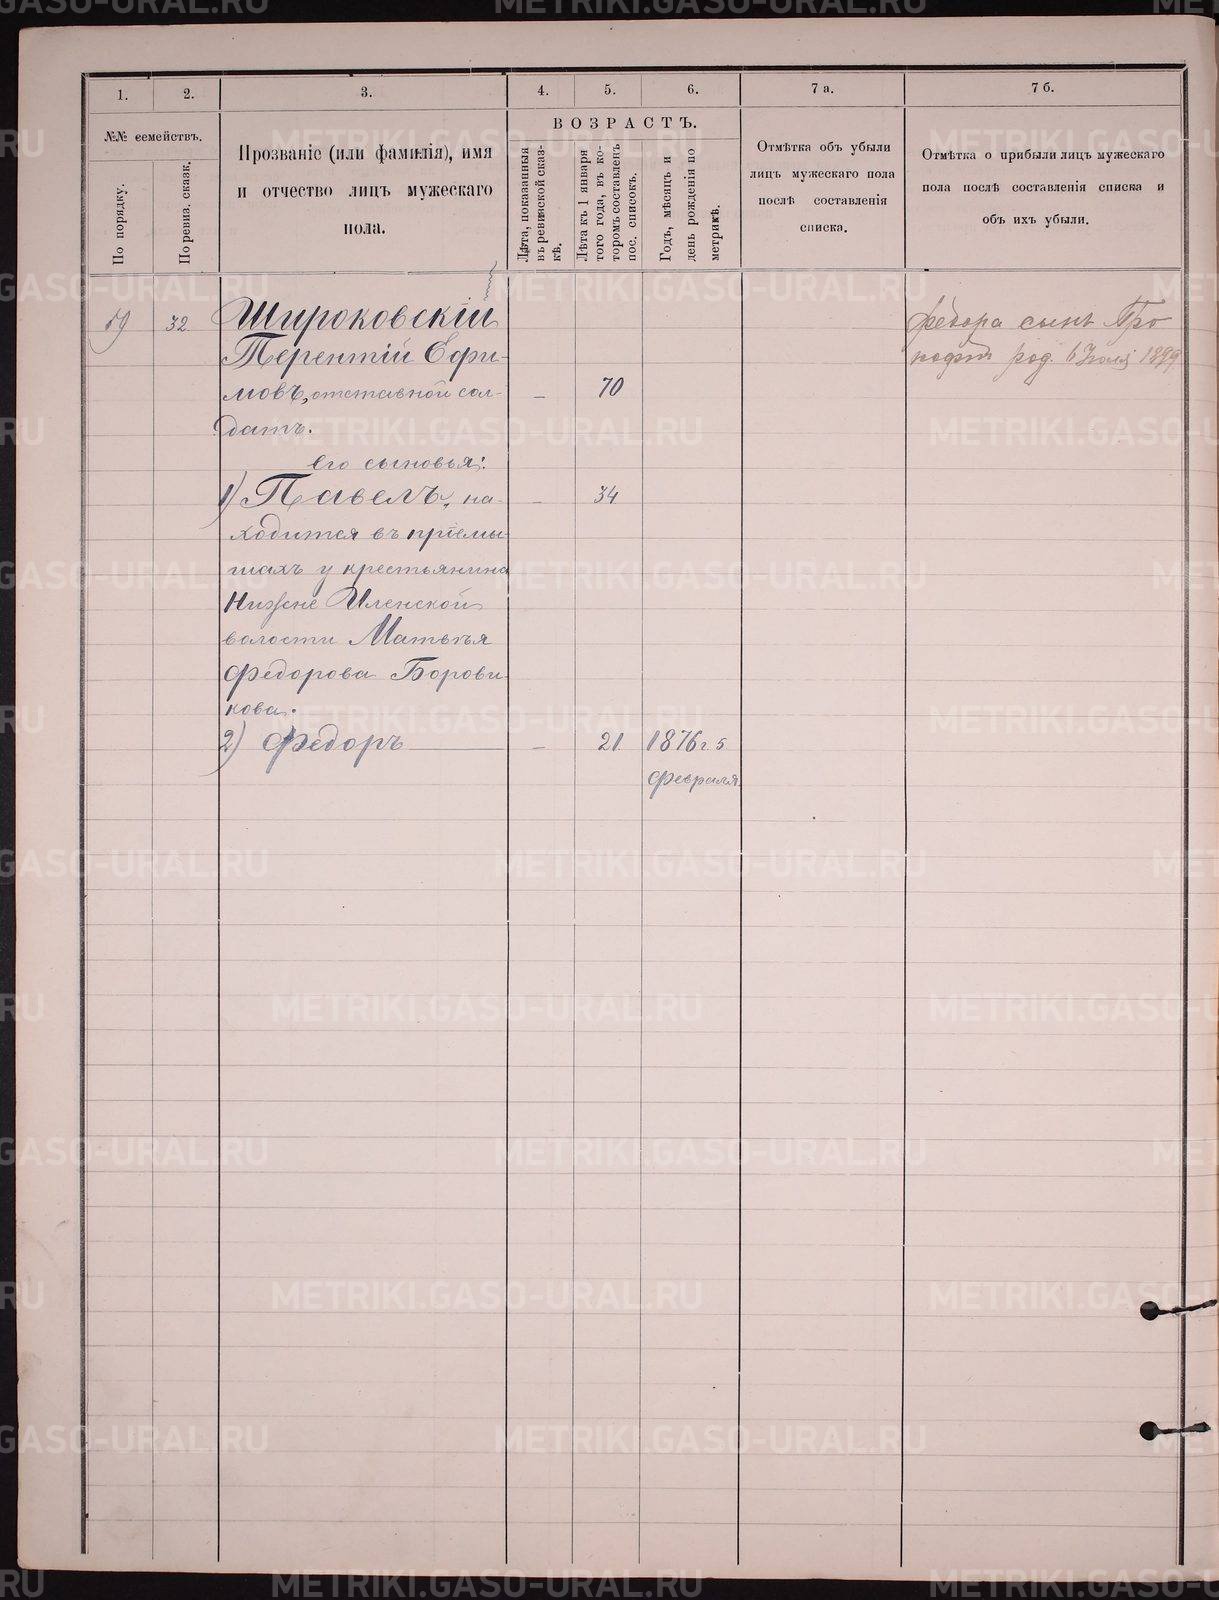 1.
2.
3.
4.
5.
6.
7 а.
7 б.
№№ семействъ.
По порядку.
По ревиз. сказк.
Прозваніе (или фамилія), имя
и отчество лицъ мужескаго
пола.
ВОЗРАСТЪ.
Лѣта, показанныя
въ ревизской сказ-
кѣ.
Лѣта къ 1 января
того года, въ ко-
торомъ составленъ
пос. списокъ.
Годъ, мѣсяцъ и
день рожденія по
метрикѣ.
Отмѣтка объ убыли
лицъ мужескаго пола
послѣ составленія
списка.
Отмѣтка о прибыли лицъ мужескаго
пола послѣ составленія списка и
объ ихъ убыли.
59 32 Широковскій
Терентій Ефи-
мовъ, отставной сол- – 70
датъ.
его сыновья:
1) Павелъ, на- – 34
ходится въ пріемы-
шахъ у крестьянина
Нижне Иленской
волости Матвѣя
Федорова Борови-
кова.
2) Федоръ – 21 1876 г. 5
февраля
Федора сынъ Про
кофій род. 6 Іюля 1899
METRIKI.GASO-URAL.RU